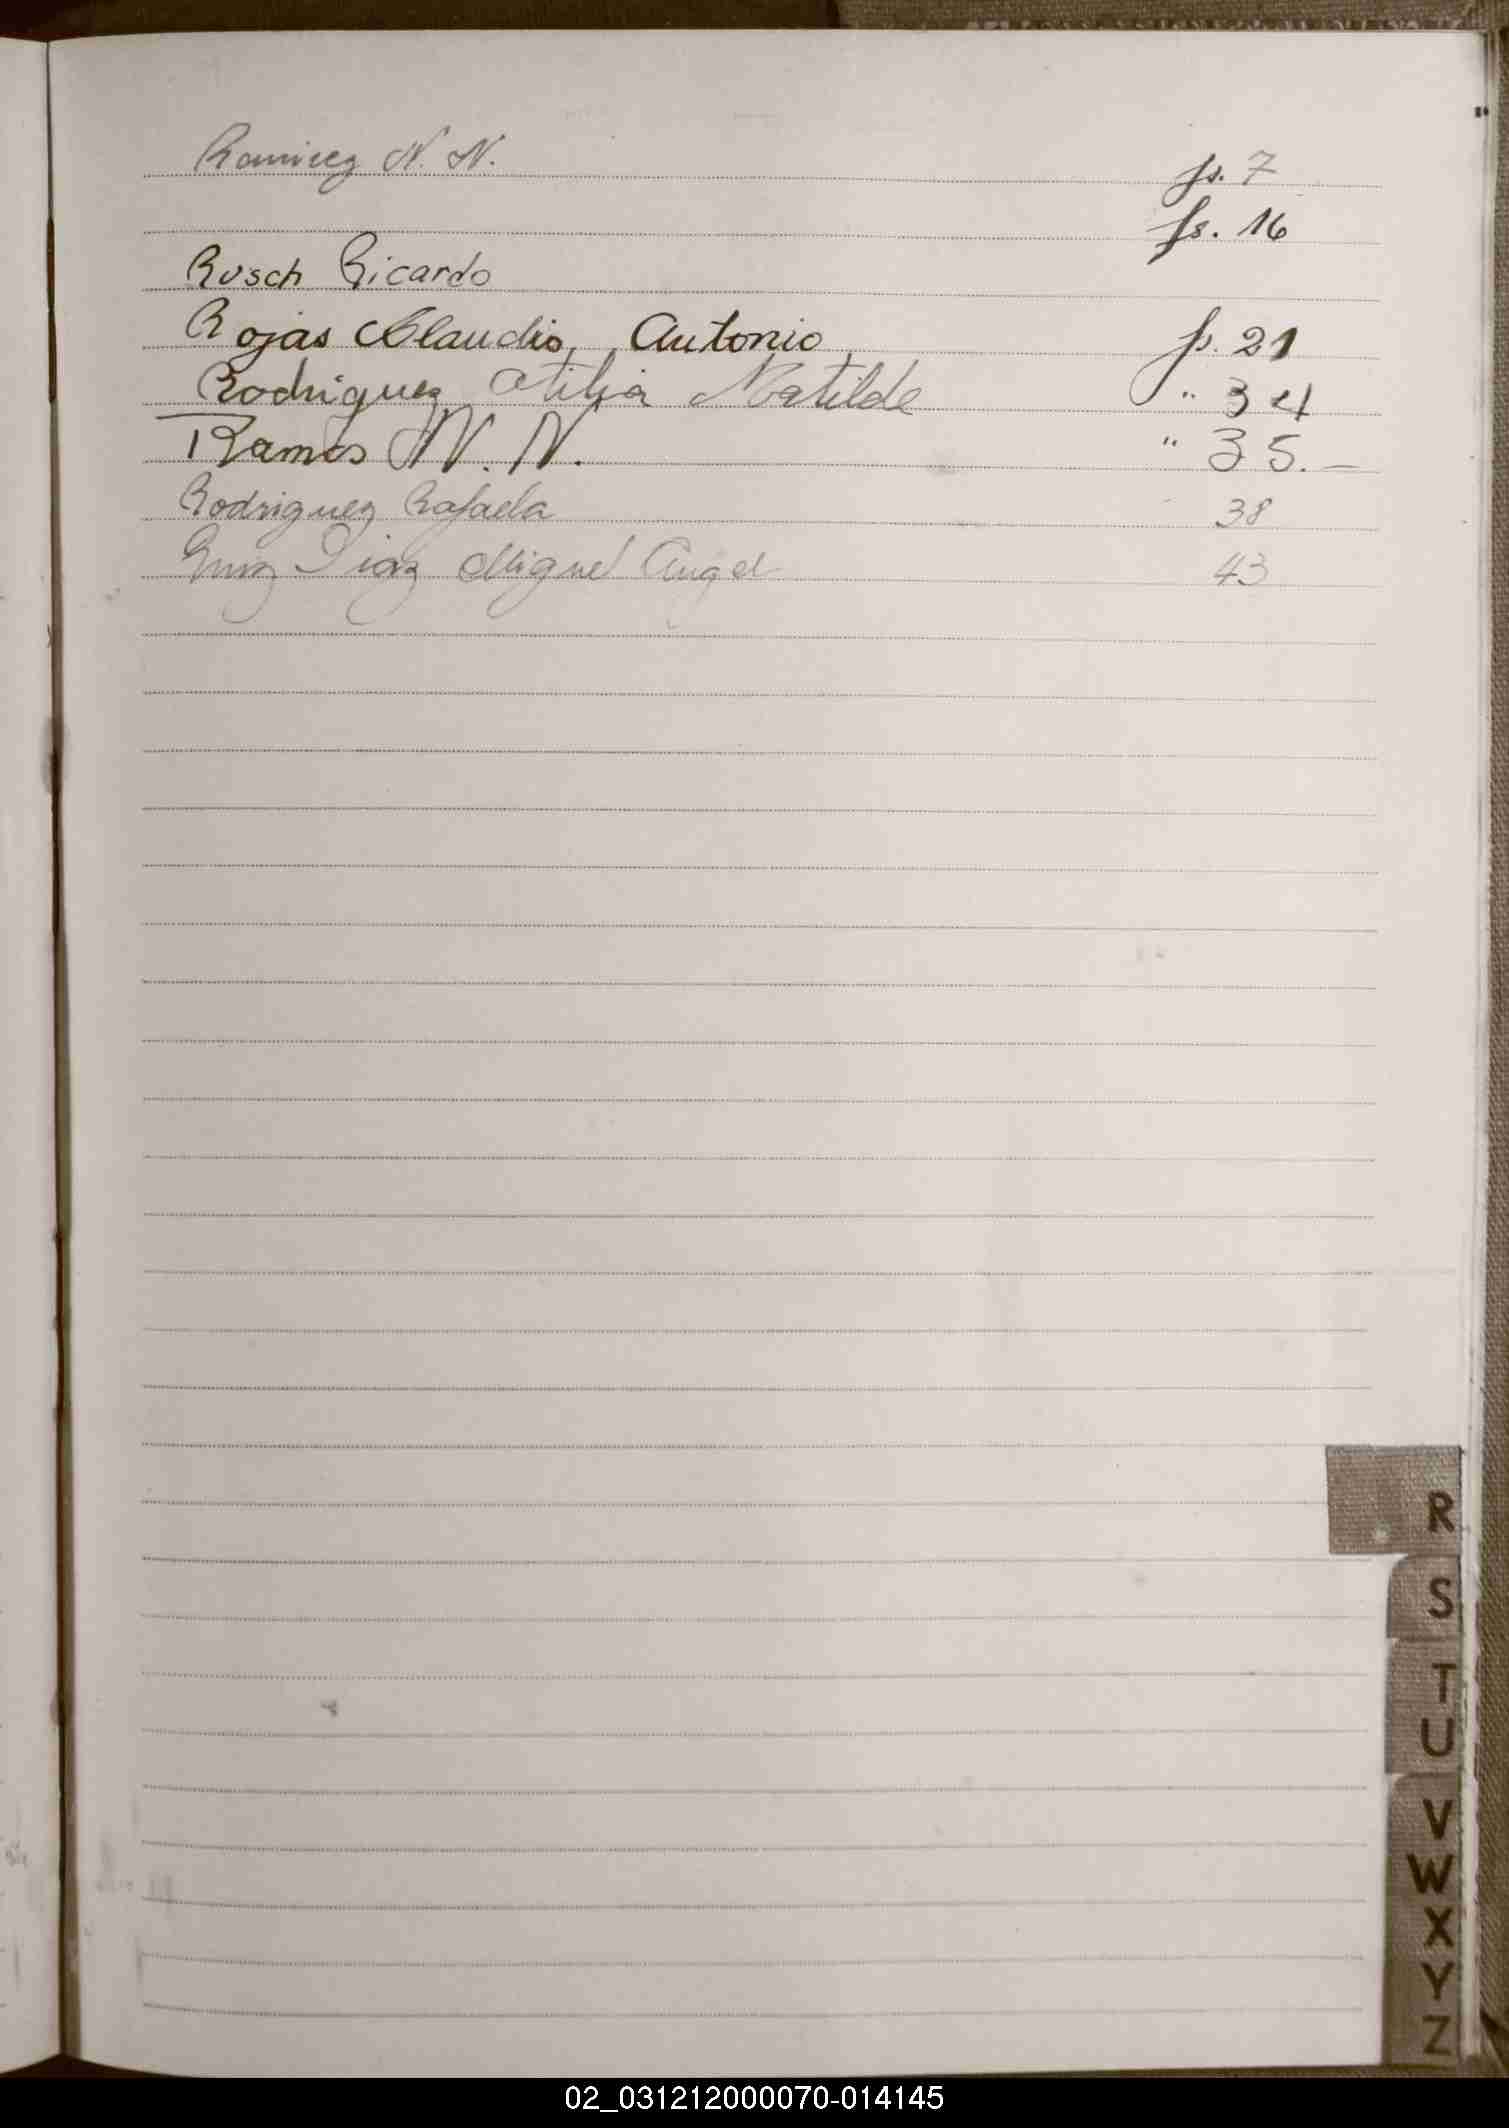 Ramirez N. N. fs. 7
fs. 16
Rusch Ricardo
Rojas Claudio, Antonio fs. 21
Rodriguez Otilia Matilde " 34
Ramos N. N. " 35.—
Rodriguez Rafaela 38
Ruiz Diaz Miguel Angel 43
R
S
T
U
V
W
X
Y
Z
02_031212000070-014145